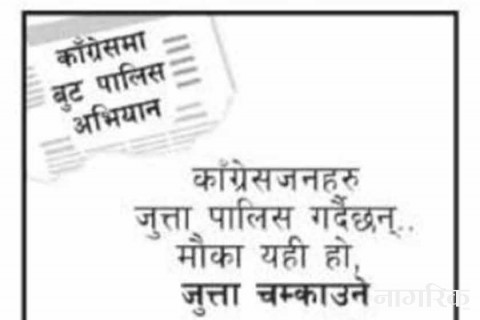 काँग्रेसमा
बुट पालिस
अभियान
काँग्रेसजनहरु
जुत्ता पालिस गर्दैछन्..
मौका यही हो,
जुत्ता चम्काउने
नागरिक